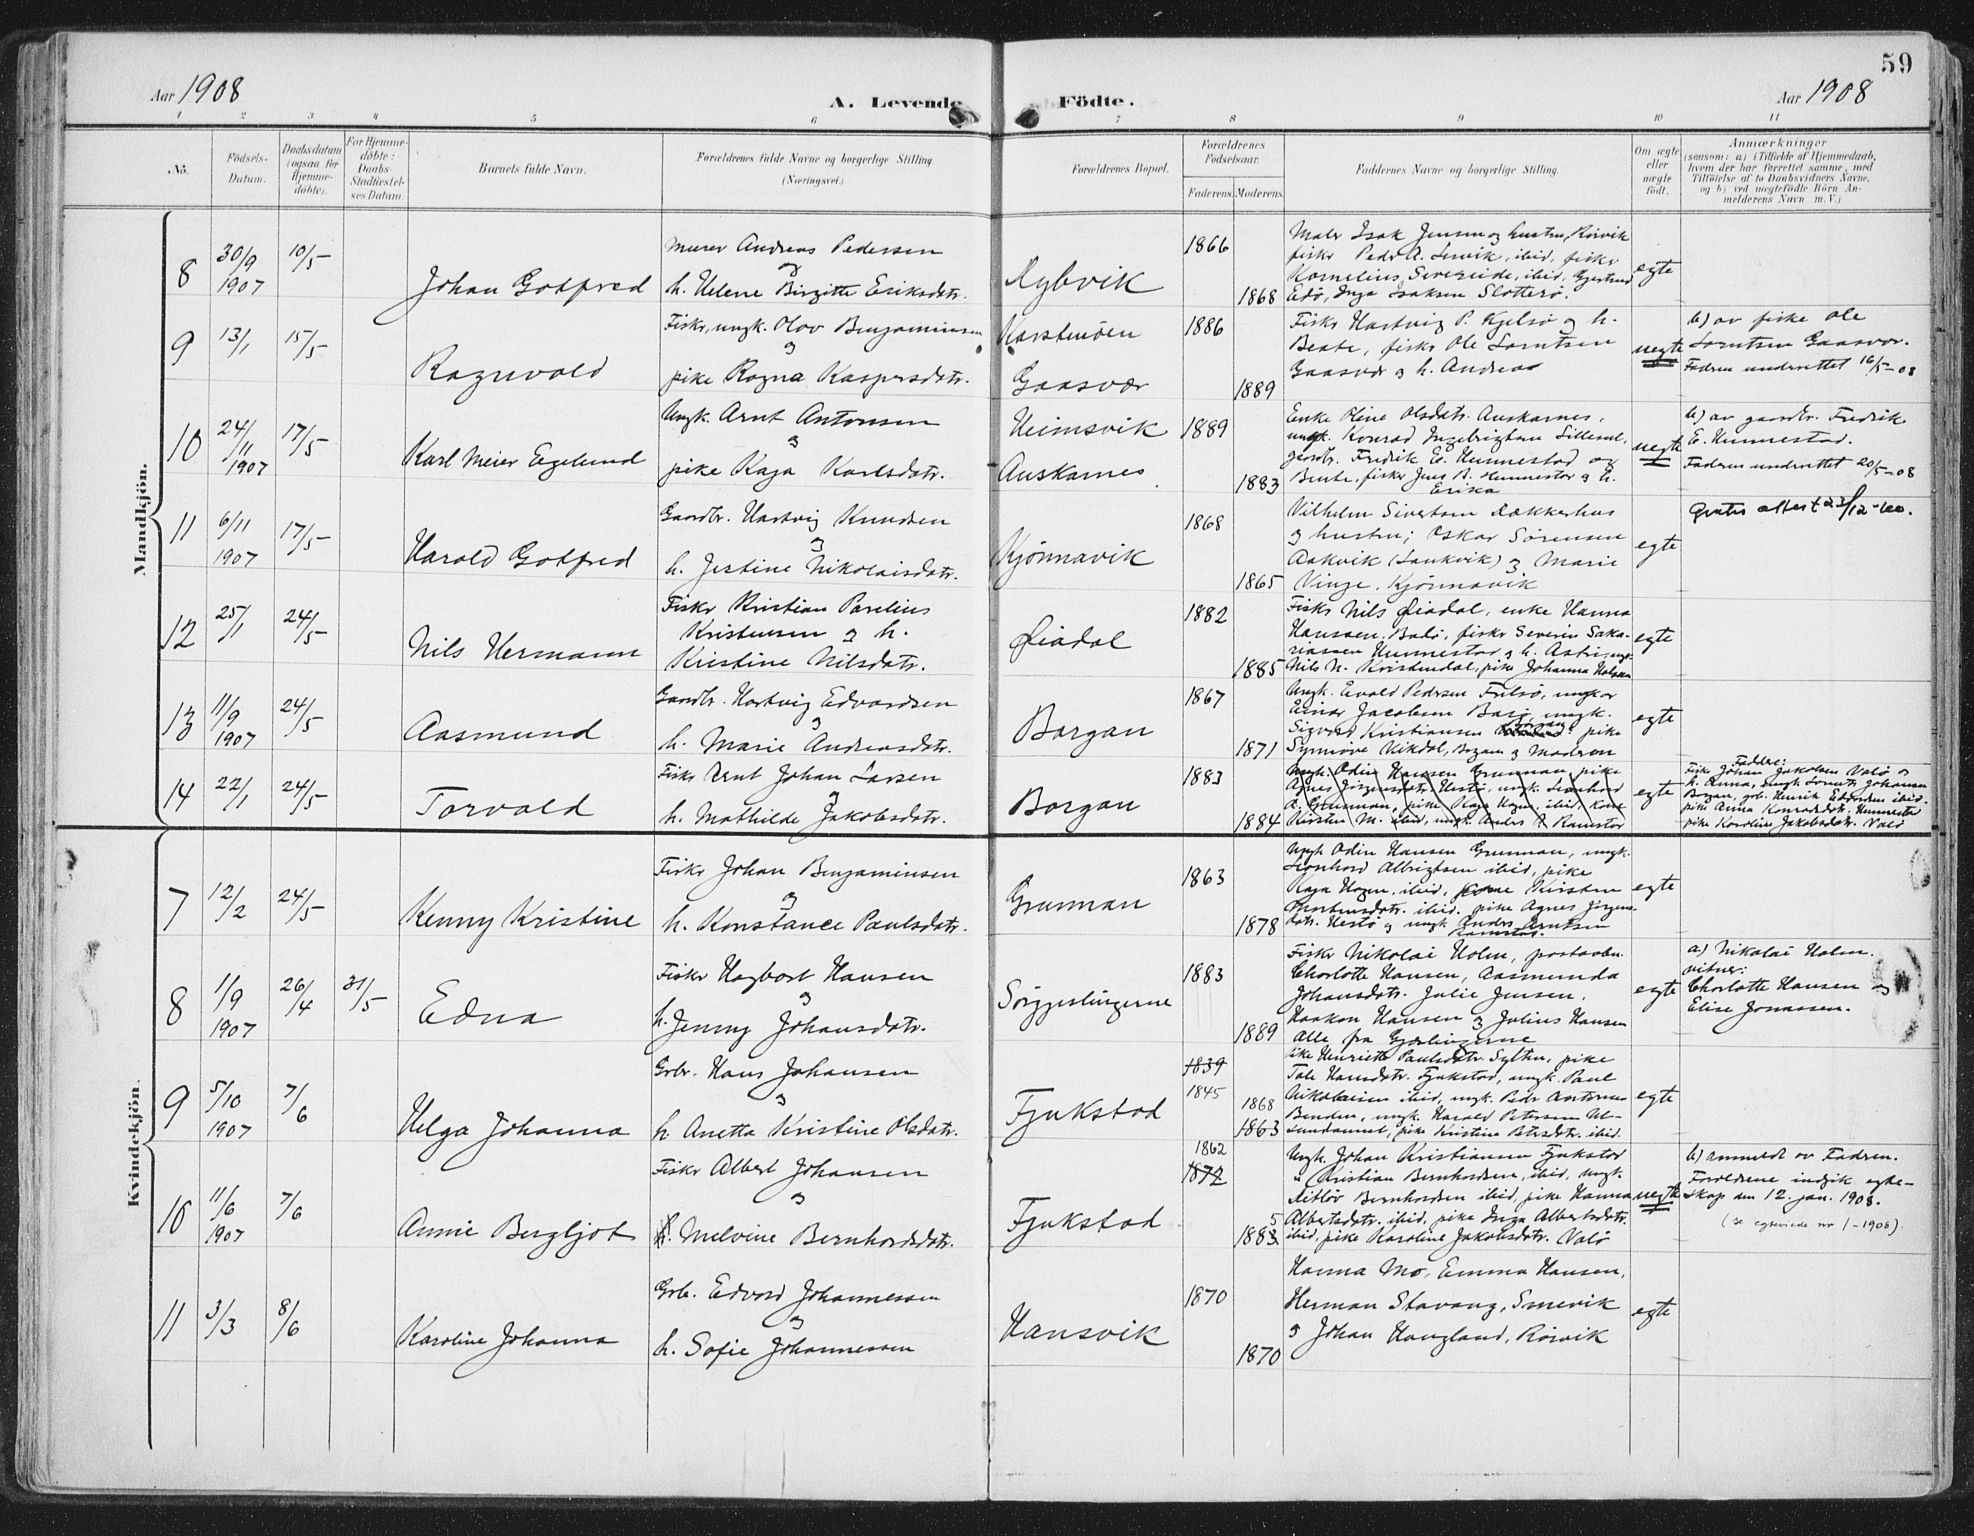 59
Aar 1908
A. Levende Födte.
Aar 1908
1 2 3 4 5 6 7 8 9 10 11
No.
Födsels-
Datum.
Daabsdatum
(ogsaa for
Hjemme-
döbte).
For Hjemme-
döbte:
Daabs-
Stadfæstel-
ses Datum.
Barnets fulde Navn.
Forældrenes fulde Navne og borgerlige Stilling
(Næringsvei.)
Forældrenes Bopæl.
Forældrenes
Fødselsaar.
Faderens. Moderens.
Faddernes Navne og borgerlige Stilling.
Om ægte
eller
uægte
födt.
Anmærkninger
(saasom: a) i Tilfælde af Hjemmedaab,
hvem der har forrettet samme, med
Tilföielse af to Daabsvidners Navne,
og b) ved uægtefödte Börn An-
melderens Navn m. V.)
Mandkjön.
8
30/9
1907
10/5
Johan Gotfred
Murer Andreas Pedersen
og
h. Helene Birgitte Eriksdatr.
1866
1868
Maler Isak Jensen og hustru, Rörvik
fisker Peder A. Survik, ibid, fisker
Kornelius Severeide, ibid, Gjertrud
Edö, Inga Isaksen Slotterö.
egte
9
13/1
15/5
Ragnvald
Fisker, ungk. Olav Benjaminsen
og
pike Ragna Kaspersdatr.
Karstenöen
Gaasvær
1886
1889
Fisker Hartvig P. Kjelsö og h.
Beate, fisker Ole Lorntsen
Gaasvær og h. Andrea
uegte
b) av fisker Ole
Lorntsen Gaasvær.
Fadren underrettet 16/5-08
10
24/11
1907
17/5
Karl Meier Egelund
Ungk. Arnt Antonsen
og
pike Kaja Karlsdatr.
Heimsvik
Auskarnes
1889
1883
Enke Oline Olsdatr. Auskarnes,
ungk. Konrad Ingebrigtsen Lillesul,
gaardbr. Fredrik E. Hunnestad og
Beate, fisker Jens B. Hunnestad og h.
Erika
uegte
b) av gaardbr. Fredrik
E. Hunnestad.
Fadren underrettet 20/5-08
11
6/11
1907
17/5
Harald Gotfred
Gaardbr. Hartvig Knudsen
og
h. Jestine Nikolaisdatr.
Kjönnavik
1868
1865
Vilhelm Sivertsen Dækkerhus
og hustru; Oskar Sørensen
Aakvik (Laukvik) og Marie
Vinge, Kjönnavik
egte
Gratis attest 23/12-60.
12
25/1
24/5
Nils Hermann
Fisker Kristian Parelius
Kristensen og h.
Kristine Nilsdatr.
Öiadal
1882
1885
Fisker Nils Öiadal, enke Hanna
Hanssen, Badö, fisker Severin Saka-
riassen Hunnestad og h. Astri, ungk.
Nils N. Kvistendal, pike Johanna Halsan
egte
13
11/9
1907
24/5
Aasmund
Gaardbr. Hartvig Edvardsen
og
h. Marie Andreasdatr.
Borgan
1867
1871
Ungk. Evald Pedersen Frelsö, ungkar
Einar Jacobsen Barö, ungk.
Sigvard Kristiansen Borgan pike
Synnöve Vikdal, Borgan og Moderen
egte
14
22/1
24/5
Torvald
Fisker Arnt Johan Larsen
og
h. Mathilde Jakobsdatr.
Borgan
1883
1884
Ungk. Odin Hansen Grunnan, pike
Agnes Jörgensdatr. Hestö, ungk. Leonhard
A. Grunnan, pike Kaja Hagen, ibid, kone
Kirsten M. ibid, ungk. Anders A. Ramstad
egte
Faddere:
Fisker Johan Jakobsen Valö og
h. Anna, ungk. Lornts Johansen
Borgan, grbr. Henrik Edvardsen ibid.
pike Anna Konradsdatr. Hunnestad
pike Karoline Jakobsdatr. Valö
Kvindekjön.
7
12/2
24/5
Kenny Kristine
Fisker Johan Benjaminsen
og
h. Konstance Paulsdatr.
Grunnan
1863
1878
Ungk. Odin Hansen Grunnan, ungk.
Leonhard Albrigtsen ibid, pike
Kaja Hagen, ibid, kone Kirsten
Mortensdatr. ibid. pike Agnes Jörgens-
datr. Hestö og ungk. Anders Arntsen
Ramstad.
egte
8
1/9
1907
26/4
31/5
Edna
Fisker Hagbart Hansen
og
h. Jenny Johansdatr.
Sörgjeslingerne
1883
1889
Fisker Nikolai Holm, postaabn.
Charlotte Hansen, Aasmunda
Johansdatr. Julie Jensen.
Haakon Hansen og Julius Hansen
Alle fra Gjæslingerne
egte
a) Nikolai Holm.
vitner:
Charlotte Hansen og
Elise Jonassen.
9
5/10
1907
7/6
Helga Johanna
Grbr. Hans Johansen
og
h. Anetta Kristine Olsdatr.
Fjukstad
1839
1845
1868
1863
Pike Henriette Paulsdatr. Sylten, pike
Tale Hansdatr. Fjukstad, ungk. Paul
Nikolaisen ibid, ungk. Peder Antonsen
Benden, ungk. Harald Petersen Ul-
sundaunet, pike Kristine Petersdatr. ibid.
egte
10
11/6
1907
7/6
Annie Bergljot
Fisker Albert Johansen
og
h. Melvine Bernhardsdatr.
Fjukstad
1862
1872
5
1883
Ungk. Johan Kristiansen Fjukstad
" Kristian Bernhardsen, ibid, ungk.
Ditlör Bernhardsen ibid, pike Hanna
Albertsdatr. ibid, pike Inga Albertsdatr.
ibid, pike Karoline Jakobsdatr. Valö
uegte
b) anmeldt av Fadren.
Forældrene indgik egte-
skap den 12. jan. 1908.
(se egteviede nr 1-1908).
11
3/3
8/6
Karoline Johanna
Grbr. Edvard Johannessen
og
h. Sofie Johannessen
Hansvik
1870
1870
Hanna Mo, Emma Hansen,
Herman Stavang, Smevik
og Johan Haugland, Rörvik
egte